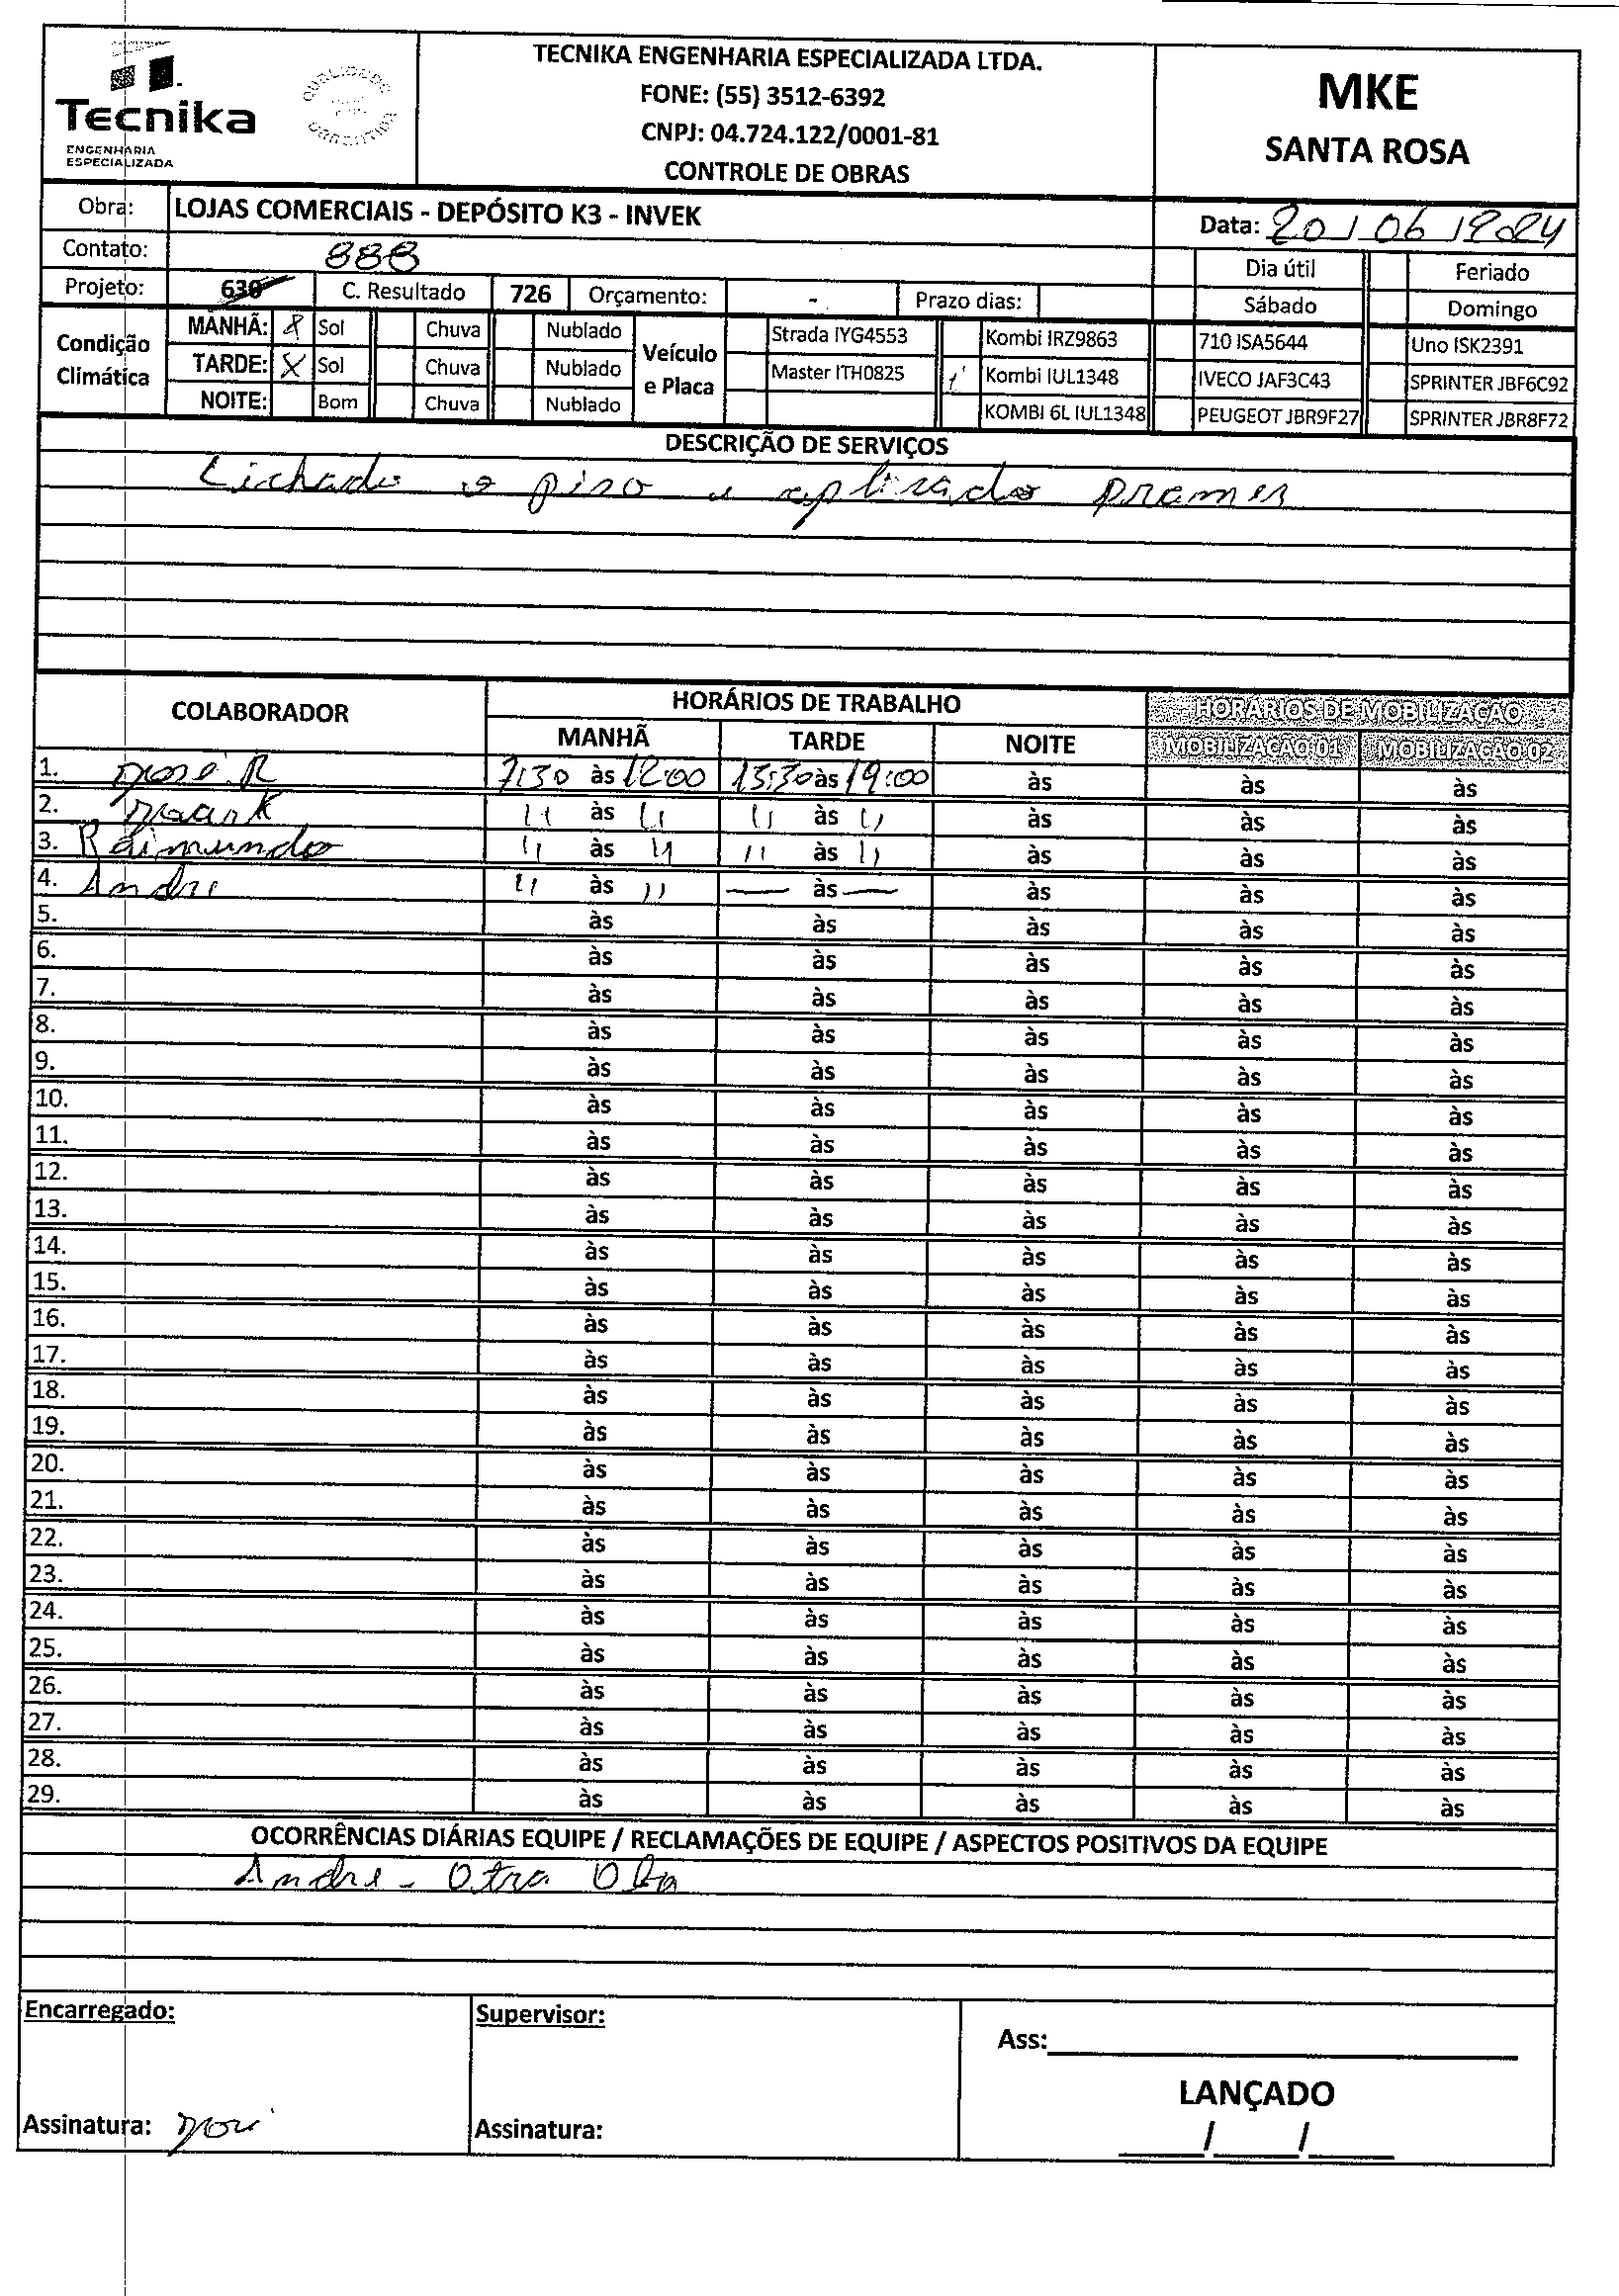 Tecnika
ENGENHARIA
ESPECIALIZADA
TECNIKA ENGENHARIA ESPECIALIZADA LTDA.
FONE: (55) 3512-6392
CNPJ: 04.724.122/0001-81
CONTROLE DE OBRAS
MKE
SANTA ROSA
Obra: LOJAS COMERCIAIS - DEPÓSITO K3 - INVEK
Data: 20/06/2024
Contato: 888
Dia útil Feriado
Projeto: 630 C. Resultado 726 Orçamento: - Prazo dias: Sábado Domingo
Condição Climática
MANHÃ: X Sol Chuva Nublado
TARDE: X Sol Chuva Nublado
NOITE: Bom Chuva Nublado
Veículo e Placa
Strada IYG4553 Kombi IRZ9863 710 ISA5644 Uno ISK2391
Master ITH0825 Kombi IUL1348 IVECO JAF3C43 SPRINTER JBF6C92
KOMBI 6L IUL1348 PEUGEOT JBR9F27 SPRINTER JBR8F72
DESCRIÇÃO DE SERVIÇOS
Lichado o piso e aplicado pramer
COLABORADOR HORÁRIOS DE TRABALHO HORÁRIOS DE MOBILIZAÇÃO
MANHÃ TARDE NOITE MOBILIZAÇÃO 01 MOBILIZAÇÃO 02
1. José R 7:30 às 12:00 13:30 às 19:00 às às às
2. " às " " às " às às às
3. Raimundo " às " " às " às às às
4. Andre " às " — às — às às às
5. às às às às às
6. às às às às às
7. às às às às às
8. às às às às às
9. às às às às às
10. às às às às às
11. às às às às às
12. às às às às às
13. às às às às às
14. às às às às às
15. às às às às às
16. às às às às às
17. às às às às às
18. às às às às às
19. às às às às às
20. às às às às às
21. às às às às às
22. às às às às às
23. às às às às às
24. às às às às às
25. às às às às às
26. às às às às às
27. às às às às às
28. às às às às às
29. às às às às às
OCORRÊNCIAS DIÁRIAS EQUIPE / RECLAMAÇÕES DE EQUIPE / ASPECTOS POSITIVOS DA EQUIPE
Andre - Otra Obra
Encarregado: Supervisor:
Ass:
LANÇADO
Assinatura: José Assinatura:
/ /